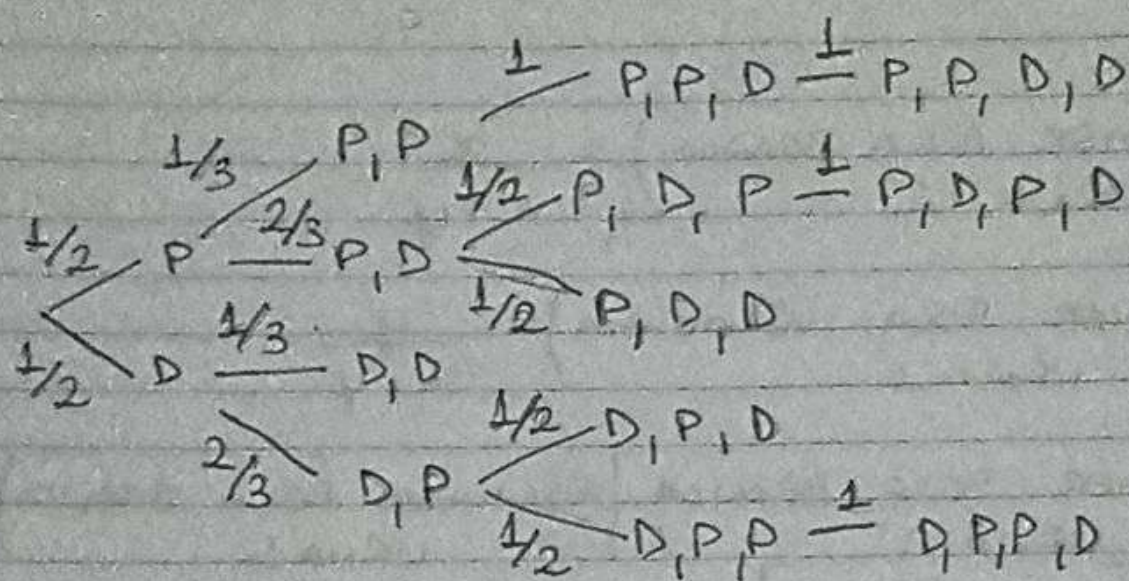 1 P, P, D 1 P, P, D, D
1/3 P, P
1/2 P, D, P 1 P, D, P, D
1/2 P 2/3 P, D
1/2 P, D, D
1/2 D 1/3 D, D
1/2 D, P, D
2/3 D, P
1/2 D, P, P 1 D, P, P, D